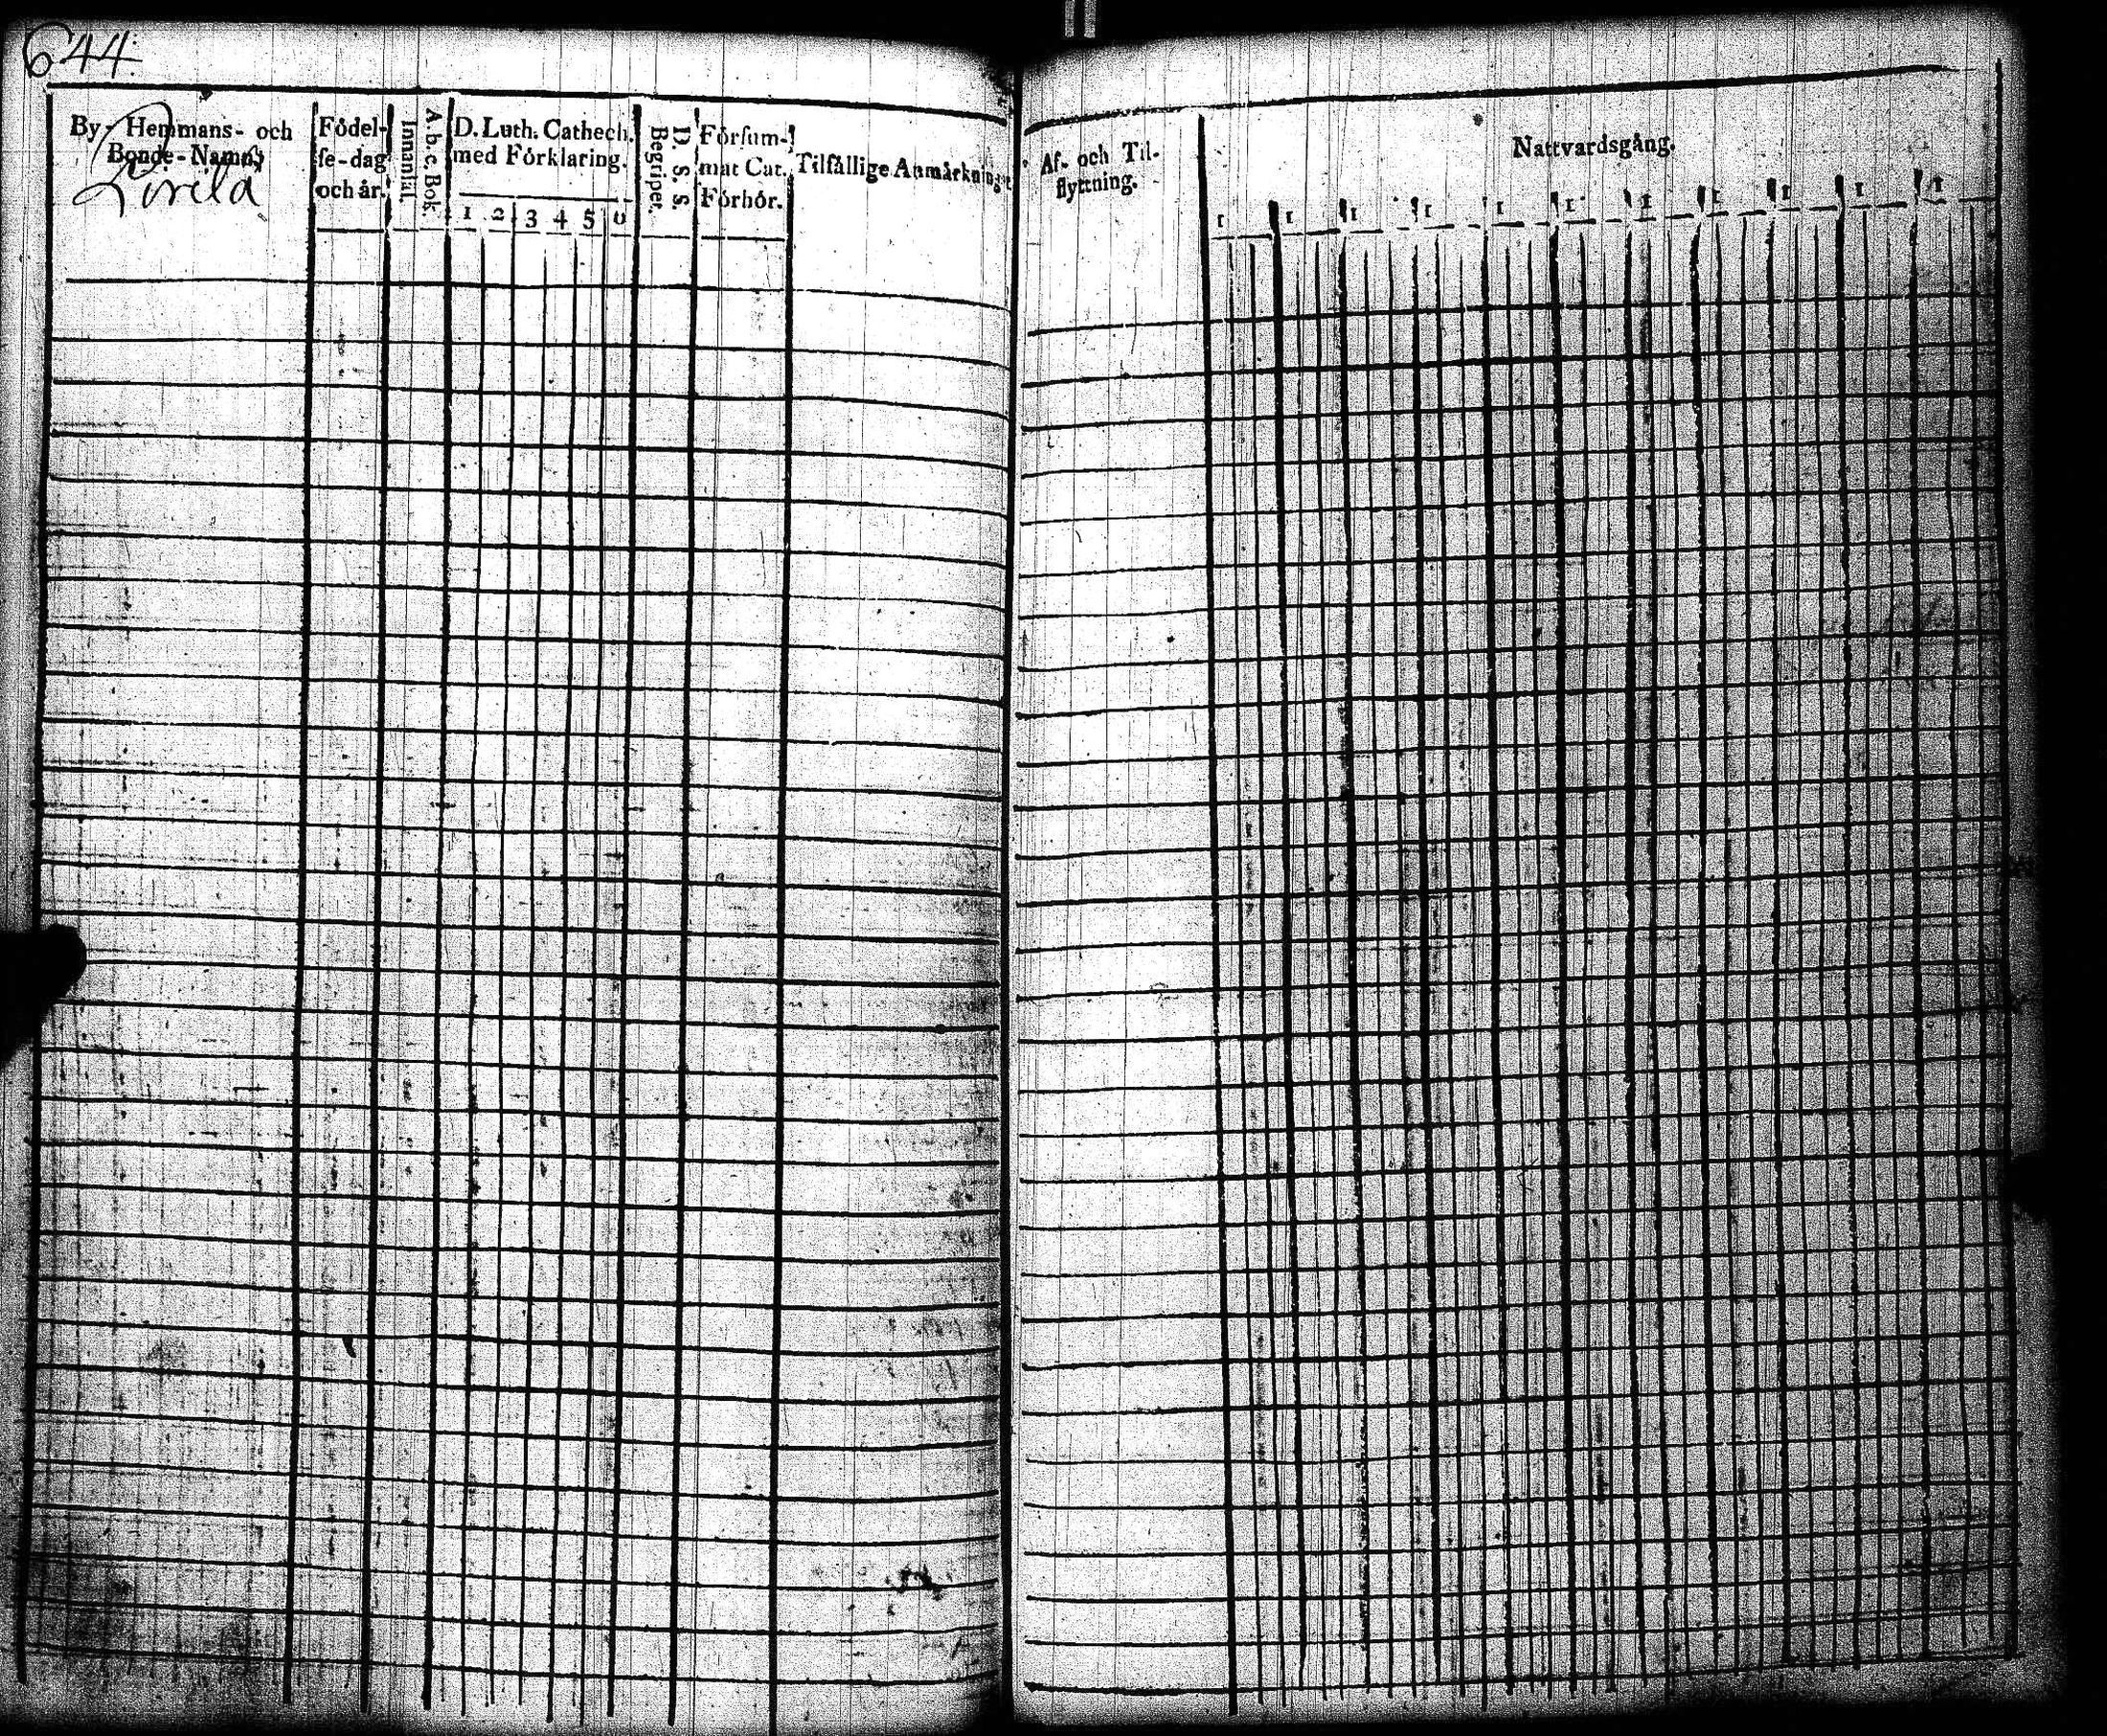 644.
By- Hemmans- och
Bonde-Namn,
Födel-
se-dag
och år.
Innanläs.
A. b. c. Bok.
D. Luth. Cathech.
med Förklaring.
1 2 3 4 5 6
D. S. S. S.
Begripet.
Försum-
mat Cat.
Förhör.
Tilfällige Anmärkningar
Af- och Til-
flyttning.
Nattvardsgång.
1 1 1 1 1 1 1 1 1 1 1